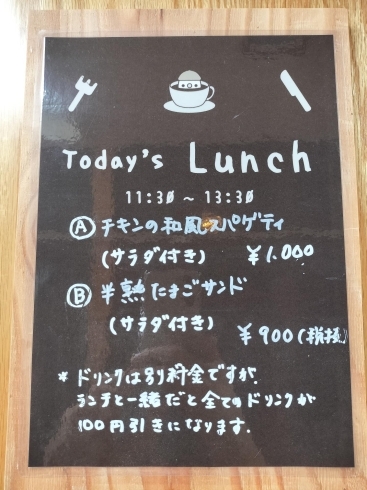 Today's Lunch
11:30 ~ 13:30
Ⓐ チキンの和風スパゲティ
(サラダ付き) ¥1,000
Ⓑ 半熟たまごサンド
(サラダ付き)
¥900(税抜)
* ドリンクは別料金ですが、
ランチと一緒だと全てのドリンクが
100円引きになります.